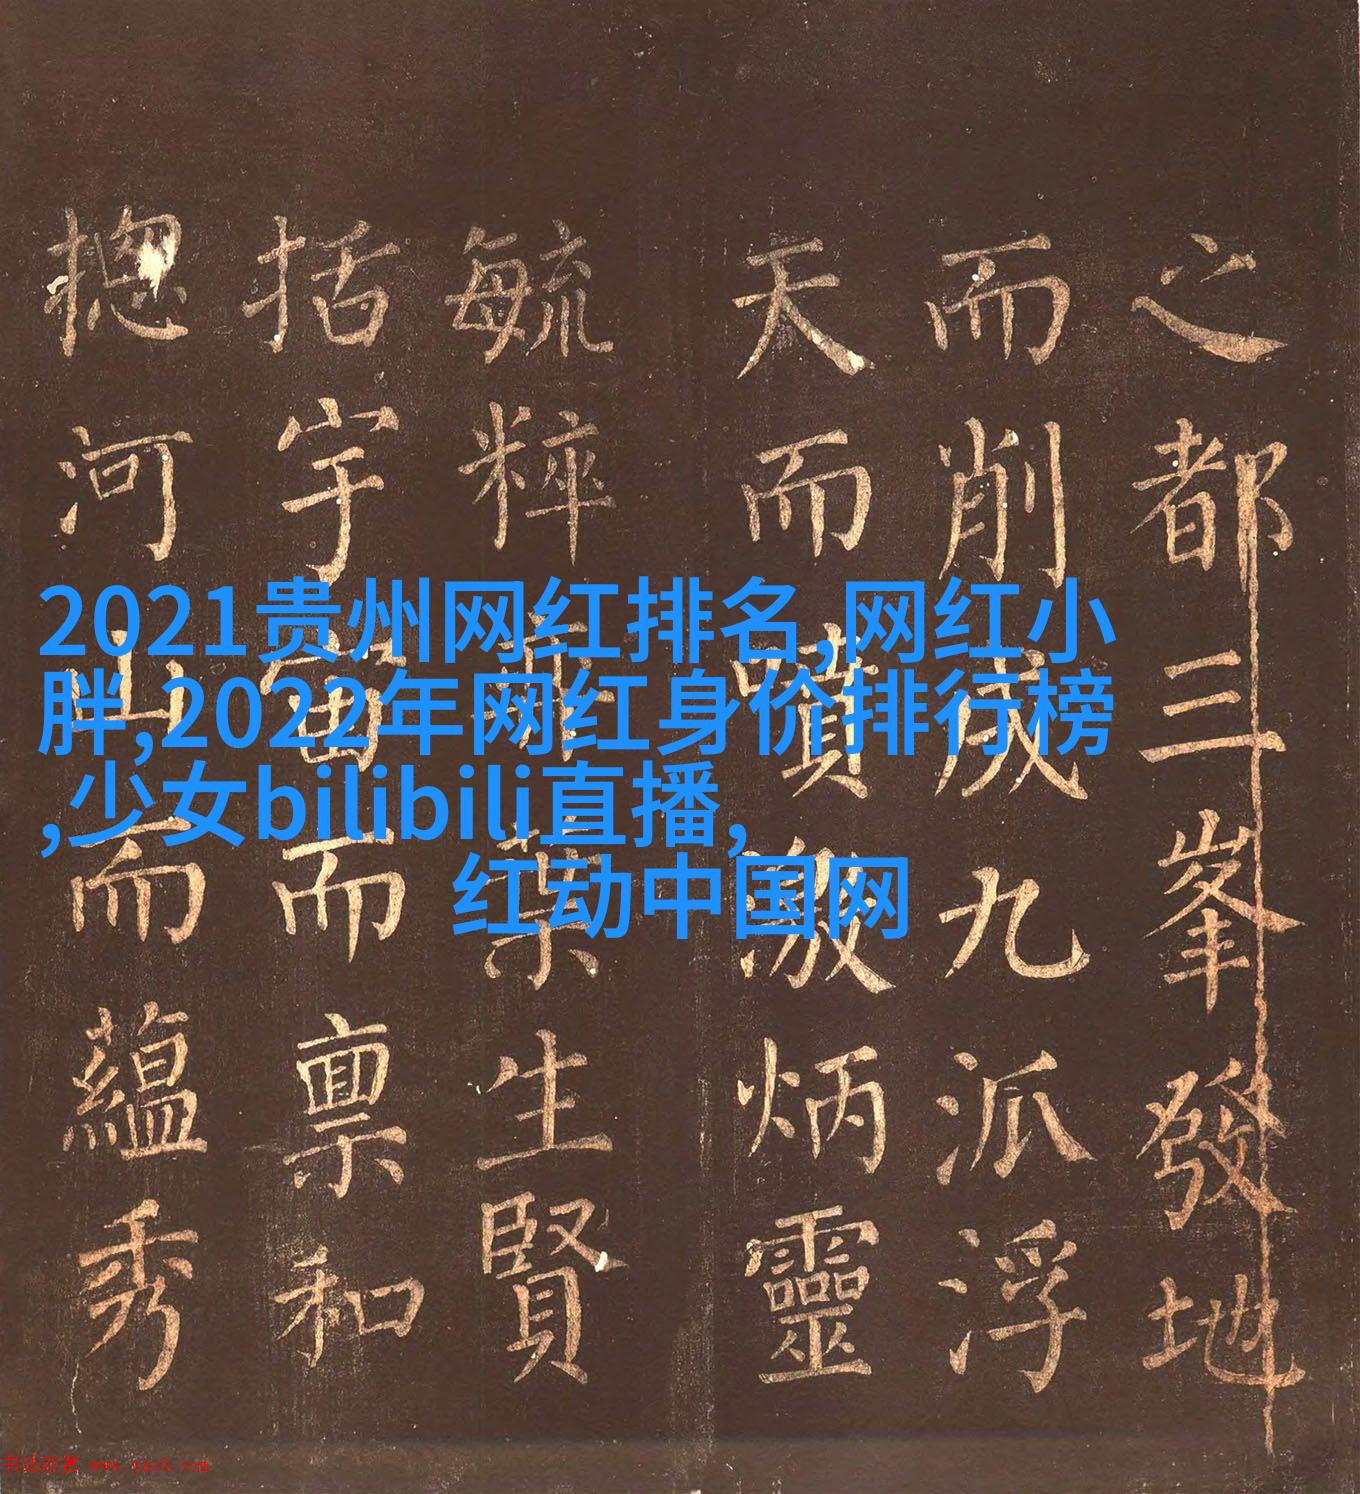 2021贵州网红排名,网红小
胖,2022年网红身价排行榜
,少女bilibili直播,
红动中国网
之都三峯發地
而削成九派浮
天而噴激炳靈
毓粹葉生賢
括宇宙而稟和
揔河山而蘊秀
书法欣赏 www.yac8.com